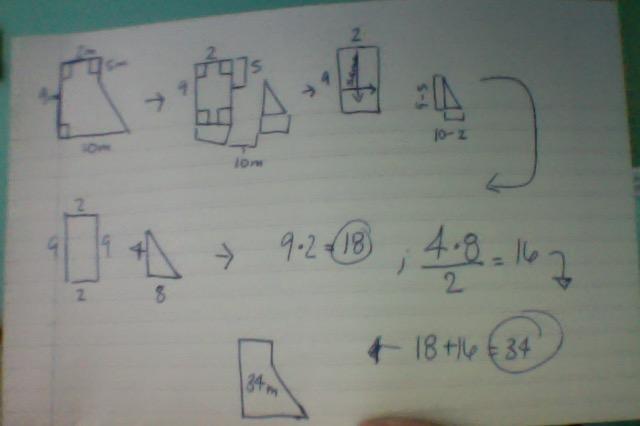 2m 5m 9m 10m → 2 9 5 10m → 2 9 9-5 10-2
2 9 9 2 4 8 → 9·2=18 ; 4·8/2 = 16
← 18+16=34
34m